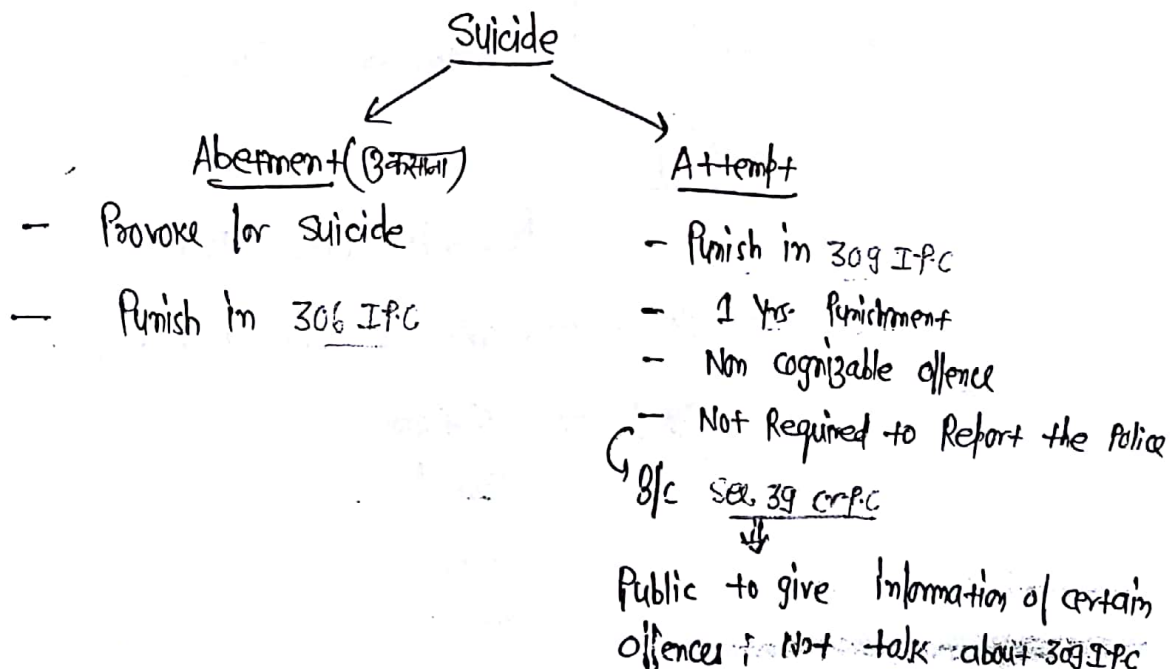 Suicide
Abetment (उकसाना)
- Provoke for suicide
- Punish in 306 I.P.C
Attempt
- Punish in 309 I.P.C
- 1 Yrs. Punishment
- Non cognizable offence
- Not Required to Report the Police
B/c Sec. 39 Cr.P.C
Public to give Information of certain
offences ; Not talk about 309 I.P.C